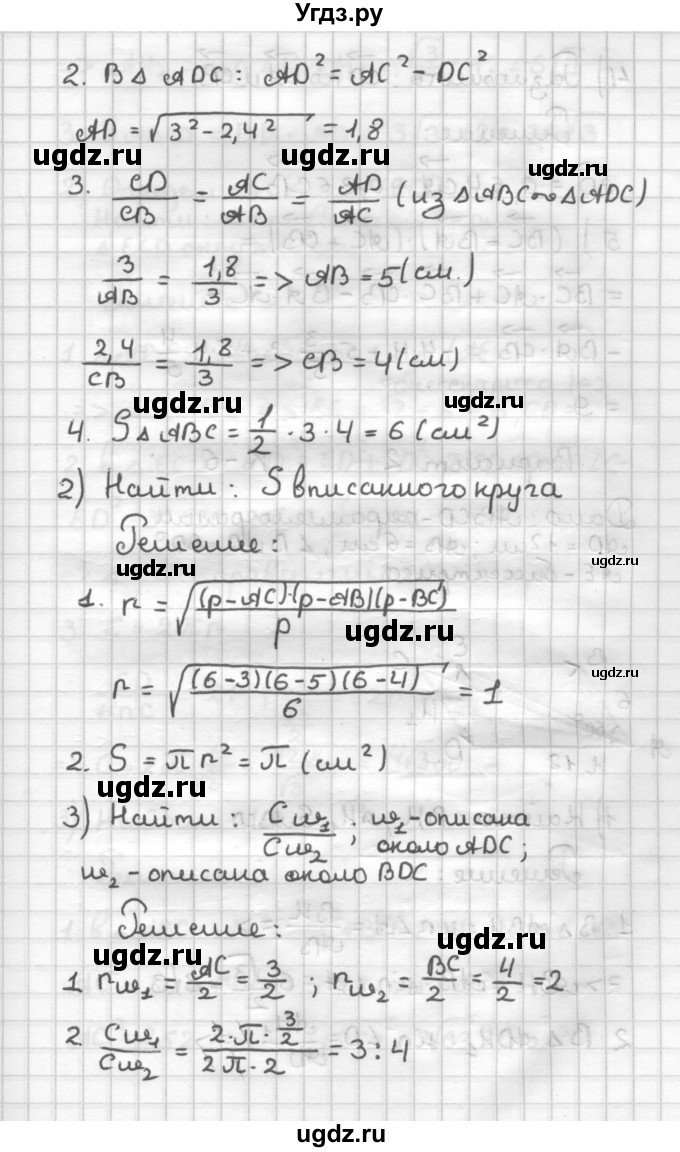 Угдз.ру
2. В Δ ADC: AD² = AC² - DC²
AD = √(3² - 2,4²) = 1,8
ugdz.ru ugdz.ru
ugdz.ru
3. CD/CB = AC/AB = AD/AC (из ΔABC ∾ ΔADC)
ugdz.ru
3/AB = 1,8/3 => AB = 5 (см.)
ugdz.ru
2,4/CB = 1,8/3 => CB = 4 (см)
ugdz.ru ugdz.ru
4. SΔABC = 1/2 · 3 · 4 = 6 (см²)
2) Найти: S вписанного круга
Решение:
ugdz.ru
1. r = √((p-AC)·(p-AB)(p-BC)/p)
ugdz.ru
ugdz.ru
r = √((6-3)(6-5)(6-4)/6) = 1
2. S = πr² = π (см²)
ugdz.ru
3) Найти: Cω₁/Cω₂; ω₂-описана
около ADC;
ω₂ - описана около BDC:
ugdz.ru
Решение:
ugdz.ru
1 rω₁ = AC/2 = 3/2; rω₂ = BC/2 = 4/2 = 2
ugdz.ru
2. Cω₁/Cω₂ = (2·π·3/2)/(2π·2) = 3:4
ugdz.ru
ugdz.ru